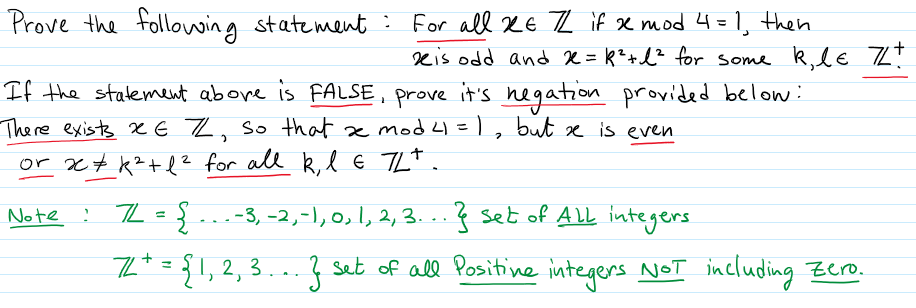 Prove the following statement : For all x ∈ ℤ if x mod 4 = 1, then
x is odd and x = k² + l² for some k, l ∈ ℤ⁺.
If the statement above is FALSE, prove it's negation provided below :
There exists x ∈ ℤ, so that x mod 4 = 1, but x is even
or x ≠ k² + l² for all k, l ∈ ℤ⁺.
Note : ℤ = { ...-3, -2, -1, 0, 1, 2, 3... } set of ALL integers
ℤ⁺ = { 1, 2, 3... } set of all Positive integers NOT including Zero.